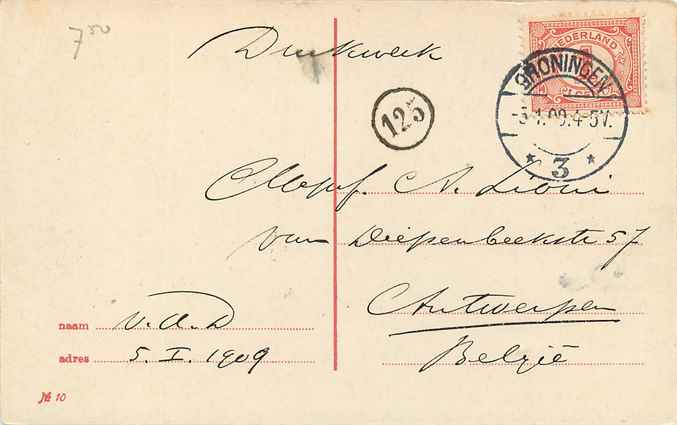 7.50
Drukwerk
NEDERLAND
GRONINGEN
-5.1.09.4-5V.
* 3 *
125
A. Lioni
van Diepenbeekstr 57
Antwerpen
België
naam v.d.D
adres 5. I. 1909
№ 10